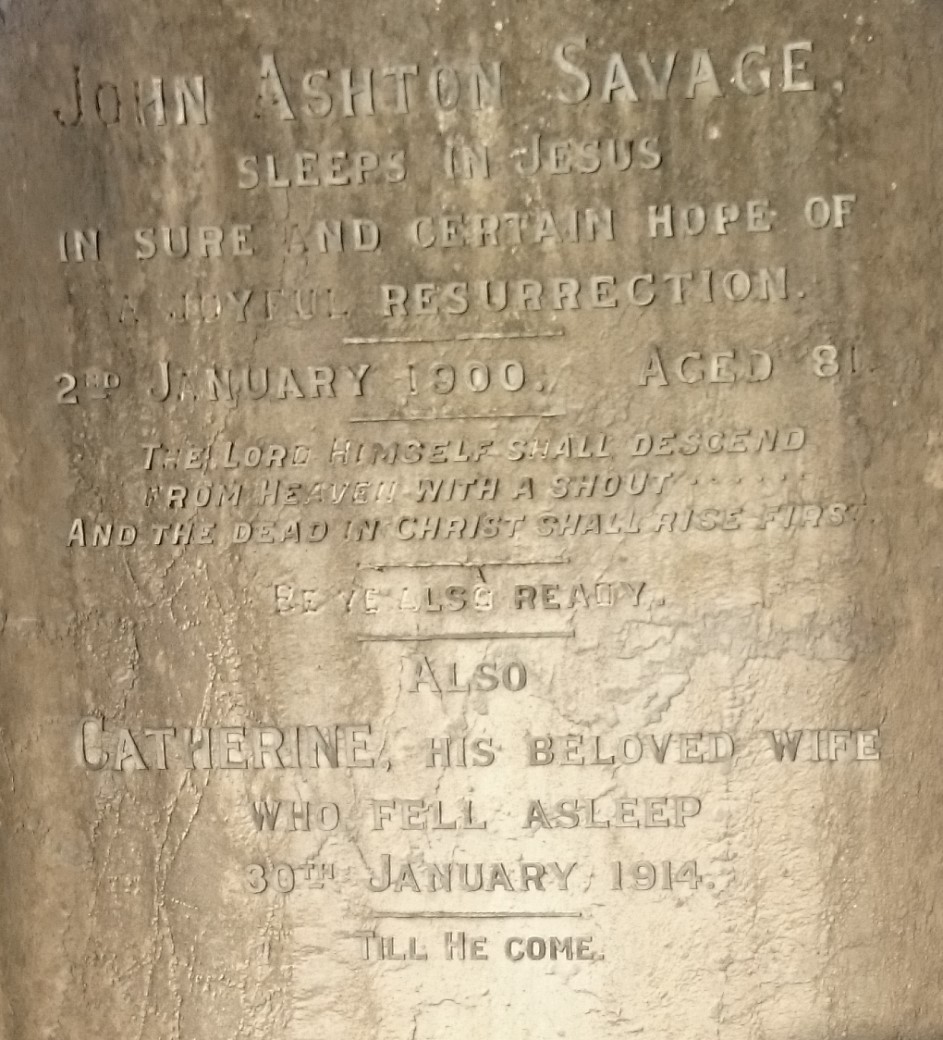 JOHN ASHTON SAVAGE,
SLEEPS IN JESUS
IN SURE AND CERTAIN HOPE OF
A JOYFUL RESURRECTION.
2ND JANUARY 1900. AGED 81.
THE LORD HIMSELF SHALL DESCEND
FROM HEAVEN WITH A SHOUT ......
AND THE DEAD IN CHRIST SHALL RISE FIRST.
BE YE ALSO READY.
ALSO
CATHERINE, HIS BELOVED WIFE
WHO FELL ASLEEP
30TH JANUARY 1914.
TILL HE COME.